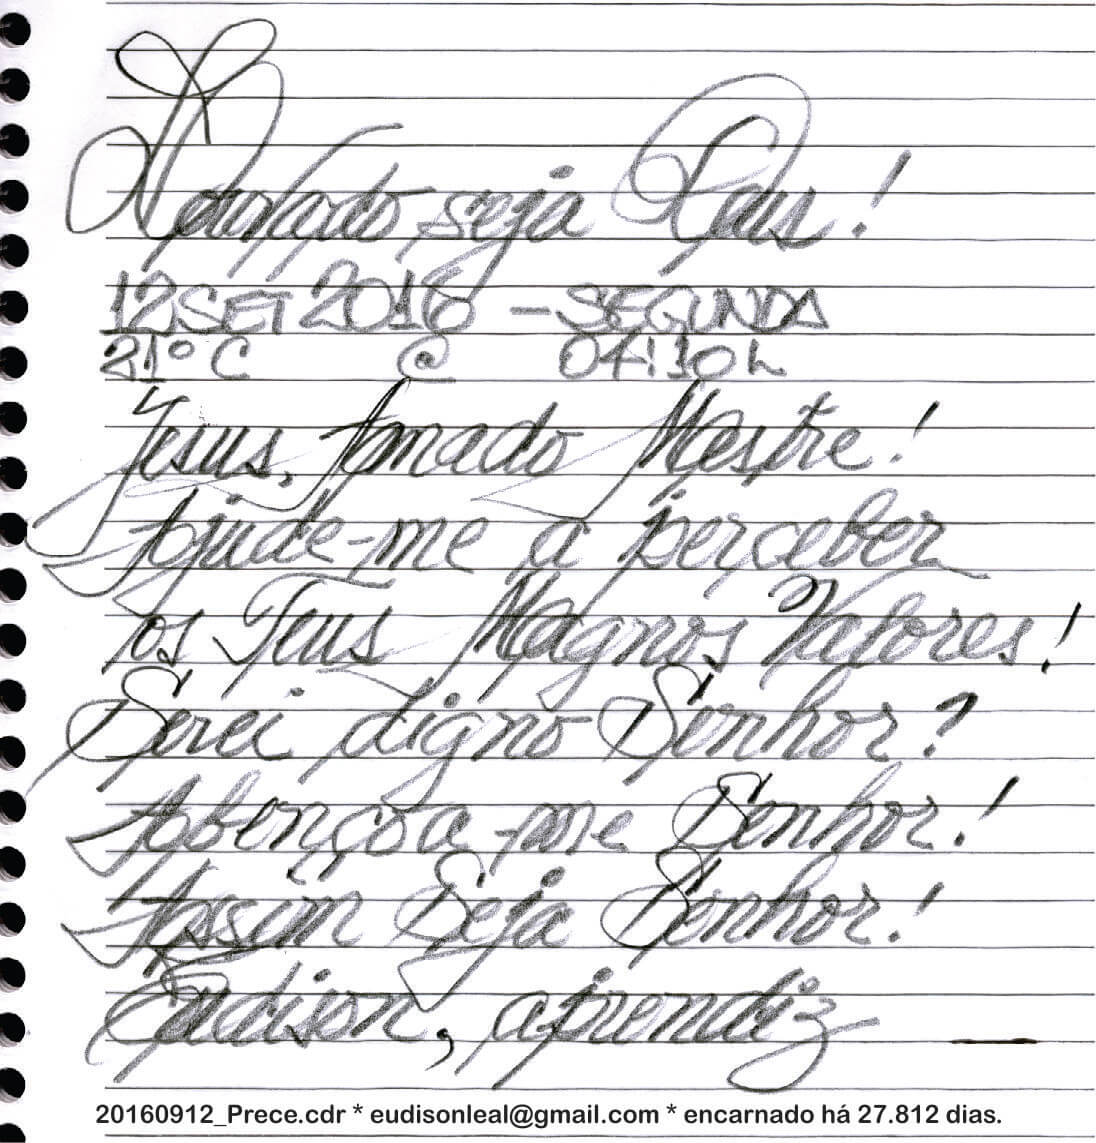 Louvado seja Deus!
12 SET 2016 - SEGUNDA
21° C C 04:10 h
Jesus, Amado Mestre!
Ajude-me a perceber
os Teus Magnos Valores!
Serei digno Senhor?
Abençoa-me Senhor!
Assim Seja Senhor!
Eudison, aprendiz
20160912_Prece.cdr * eudisonleal@gmail.com * encarnado há 27.812 dias.